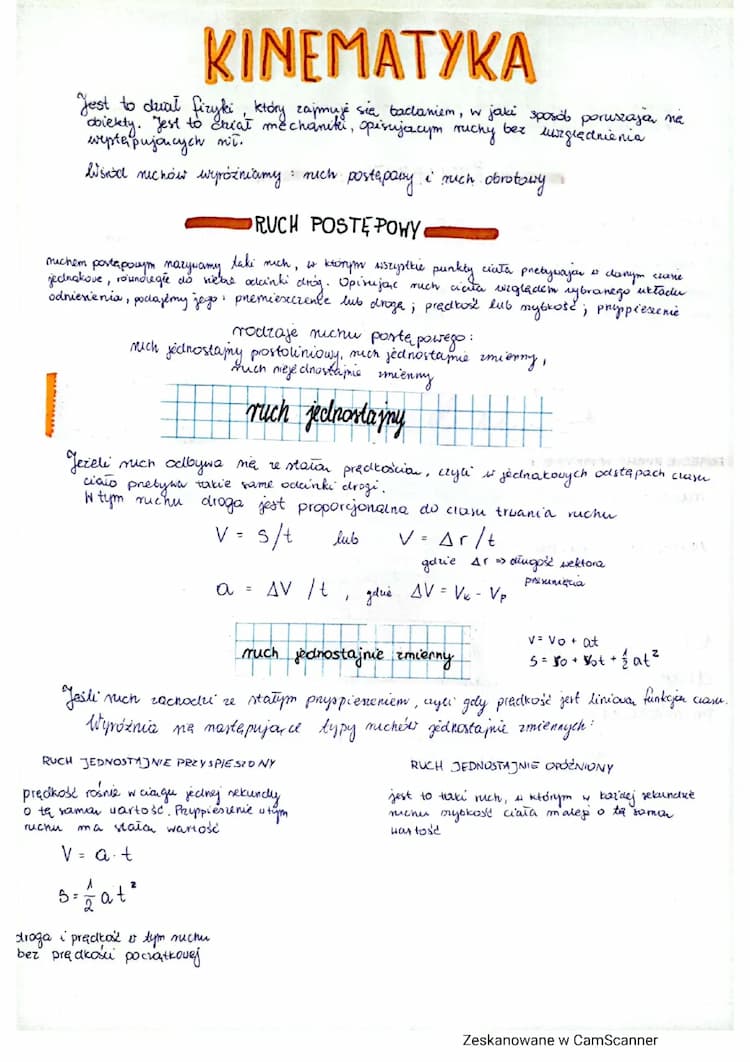 KINEMATYKA
Jest to dział fizyki, który zajmuje się badaniem, w jaki sposób poruszają się
obiekty. Jest to dział mechaniki, opisującym ruchy bez uwzględnienia
występujących sił.
Wśród ruchów wyróżniamy: ruch postępowy i ruch obrotowy
RUCH POSTĘPOWY
ruchem postępowym nazywamy taki ruch, w którym wszystkie punkty ciała przebywają w danym czasie
jednakowe, równoległe do siebie odcinki dróg. Opisując ruch ciała względem wybranego układu
odniesienia, podajemy jego: przemieszczenie lub drogę; prędkość lub szybkość; przyspieszenie
rodzaje ruchu postępowego:
ruch jednostajny prostoliniowy, ruch jednostajnie zmienny,
ruch niejednostajnie zmienny
ruch jednostajny
Jeżeli ruch odbywa się ze stałą prędkością, czyli w jednakowych odstępach czasu
ciało przebywa takie same odcinki drogi.
W tym ruchu droga jest proporcjonalna do czasu trwania ruchu
V = s/t lub V = Δr/t
gdzie Δr => długość wektora
przesunięcia
a = ΔV /t , gdzie ΔV = Vk - Vp
ruch jednostajnie zmienny
V = V0 + at
S = S0 + V0t + 1/2 at²
Jeśli ruch zachodzi ze stałym przyspieszeniem, czyli gdy prędkość jest liniową funkcją czasu.
Wyróżnia się następujące typy ruchów jednostajnie zmiennych:
RUCH JEDNOSTAJNIE PRZYSPIESZONY
prędkość rośnie w ciągu jednej sekundy
o tę samą wartość. Przyspieszenie w tym
ruchu ma stałą wartość
V = a · t
S = 1/2 at²
droga i prędkość w tym ruchu
bez prędkości początkowej
RUCH JEDNOSTAJNIE OPÓŹNIONY
jest to taki ruch, w którym w każdej sekundzie
ruchu szybkość ciała maleje o tą samą
wartość
Zeskanowane w CamScanner